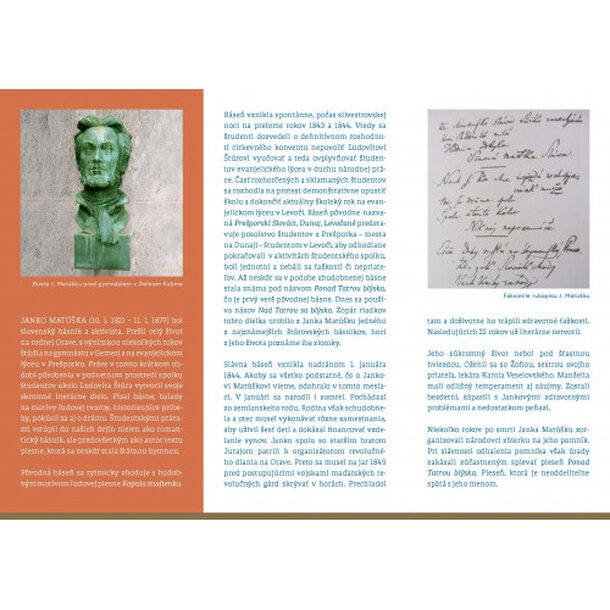 Busta J. Matúšku pred gymnáziom v Dolnom Kubíne
JANKO MATÚŠKA (10. 1. 1821 – 11. 1. 1877) bol
slovenský básnik a aktivista. Prežil celý život
na rodnej Orave, s výnimkou niekoľkých rokov
štúdia na gymnáziu v Gemeri a na evanjelickom
lýceu v Prešporku. Práve v tomto krátkom ob-
dobí pôsobenia v podnetnom prostredí spolku
študentov okolo Ľudovíta Štúra vytvoril svoje
skromné literárne dielo. Písal básne, balady
na motívy ľudovej tvorby, historizujúce príbe-
hy, pokúsil sa aj o drámu. Študentskými práca-
mi vstúpil do našich dejín nielen ako roman-
tický básnik, ale predovšetkým ako autor textu
piesne, ktorá sa neskôr stala štátnou hymnou.
Pôvodná báseň sa rytmicky zhoduje s hudob-
ným motívom ľudovej piesne Kopala studienku.
Báseň vznikla spontánne, počas silvestrovskej
noci na prelome rokov 1843 a 1844. Vtedy sa
študenti dozvedeli o definitívnom rozhodnu-
tí cirkevného konventu nepovoliť Ľudovítovi
Štúrovi vyučovať a teda ovplyvňovať študen-
tov evanjelického lýcea v duchu národnej prá-
ce. Časť rozhorčených a sklamaných študentov
sa rozhodla na protest demonštratívne opustiť
školu a dokončiť aktuálny školský rok na evan-
jelickom lýceu v Levoči. Báseň pôvodne nazva-
ná Prešporskí Slováci, Dunaj, Levočané predsta-
vuje posolstvo študentov z Prešporka – mesta
na Dunaji – študentom v Levoči, aby odhodlane
pokračovali v aktivitách študentského spolku,
boli jednotní a nebáli sa ťažkostí či nepriate-
ľov. Až neskôr sa v podobe zhudobnenej básne
stala známa pod názvom Ponad Tatrou blýska,
čo je prvý verš pôvodnej básne. Dnes sa použí-
va názov Nad Tatrou sa blýska. Zopár riadkov
tohto diela urobilo z Janka Matúšku jedného
z najznámejších štúrovských básnikov, hoci
z jeho života poznáme iba zlomky.
Slávna báseň vznikla nadránom 1. januára
1844. Akoby sa všetko podstatné, čo o Janko-
vi Matúškovi vieme, odohralo v tomto mesia-
ci. V januári sa narodil i zomrel. Pochádzal
zo zemianskeho rodu. Rodina však schudobne-
la a otec musel vykonávať rôzne zamestnania,
aby uživil šesť detí a dokázal financovať vzde-
lanie synov. Janko spolu so starším bratom
Jurajom patrili k organizátorom revolučné-
ho diania na Orave. Preto sa musel na jar 1849
pred postupujúcimi vojskami maďarských re-
volučných gárd skrývať v horách. Prechladol
Faksimile rukopisu J. Matúšku
tam a doživotne ho trápili zdravotné ťažkosti.
Nasledujúcich 22 rokov už literárne netvoril.
Jeho súkromný život nebol pod šťastnou
hviezdou. Oženil sa so Žofiou, sestrou svojho
priateľa, lekára Karola Veselovského. Manželia
mali odlišný temperament aj záujmy. Zostali
bezdetní, zápasili s Jankovými zdravotnými
problémami a nedostatkom peňazí.
Niekoľko rokov po smrti Janka Matúšku zor-
ganizovali národovci zbierku na jeho pomník.
Pri slávnosti odhalenia pomníka však úrady
zakázali zúčastneným spievať pieseň Ponad
Tatrou blýska. Pieseň, ktorá je neoddeliteľne
spätá s jeho menom.